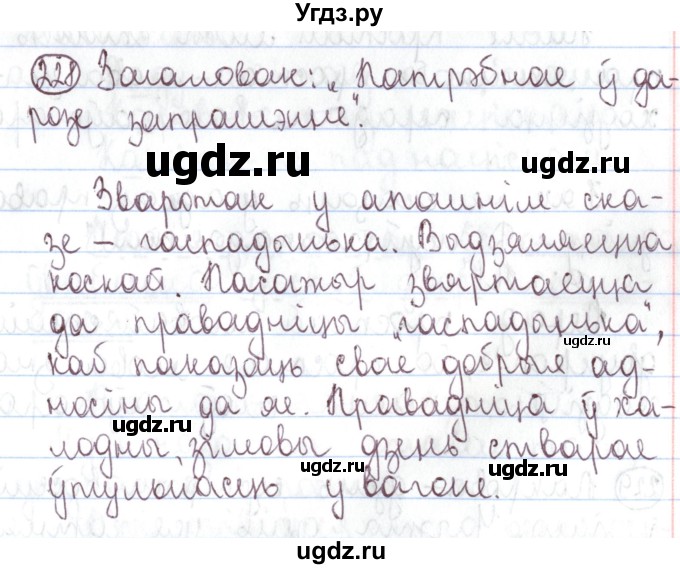 Угдз.ру
228 Загаловак: "Патрэбнае ў да-
розе запрашэнне".
ugdz.ru
ugdz.ru
Зваротак у апошнім ска-
зе – гаспадынька. Выдзяляецца
коскай. Пасажыр звяртаецца
да правадніцы "гаспадынька",
ugdz.ru
каб паказаць свае добрыя ад-
носіны да яе. Правадніца ў ха-
ugdz.ru
лодны зімовы дзень стварае
ugdz.ru
ўтульнасць у вагоне.
ugdz.ru